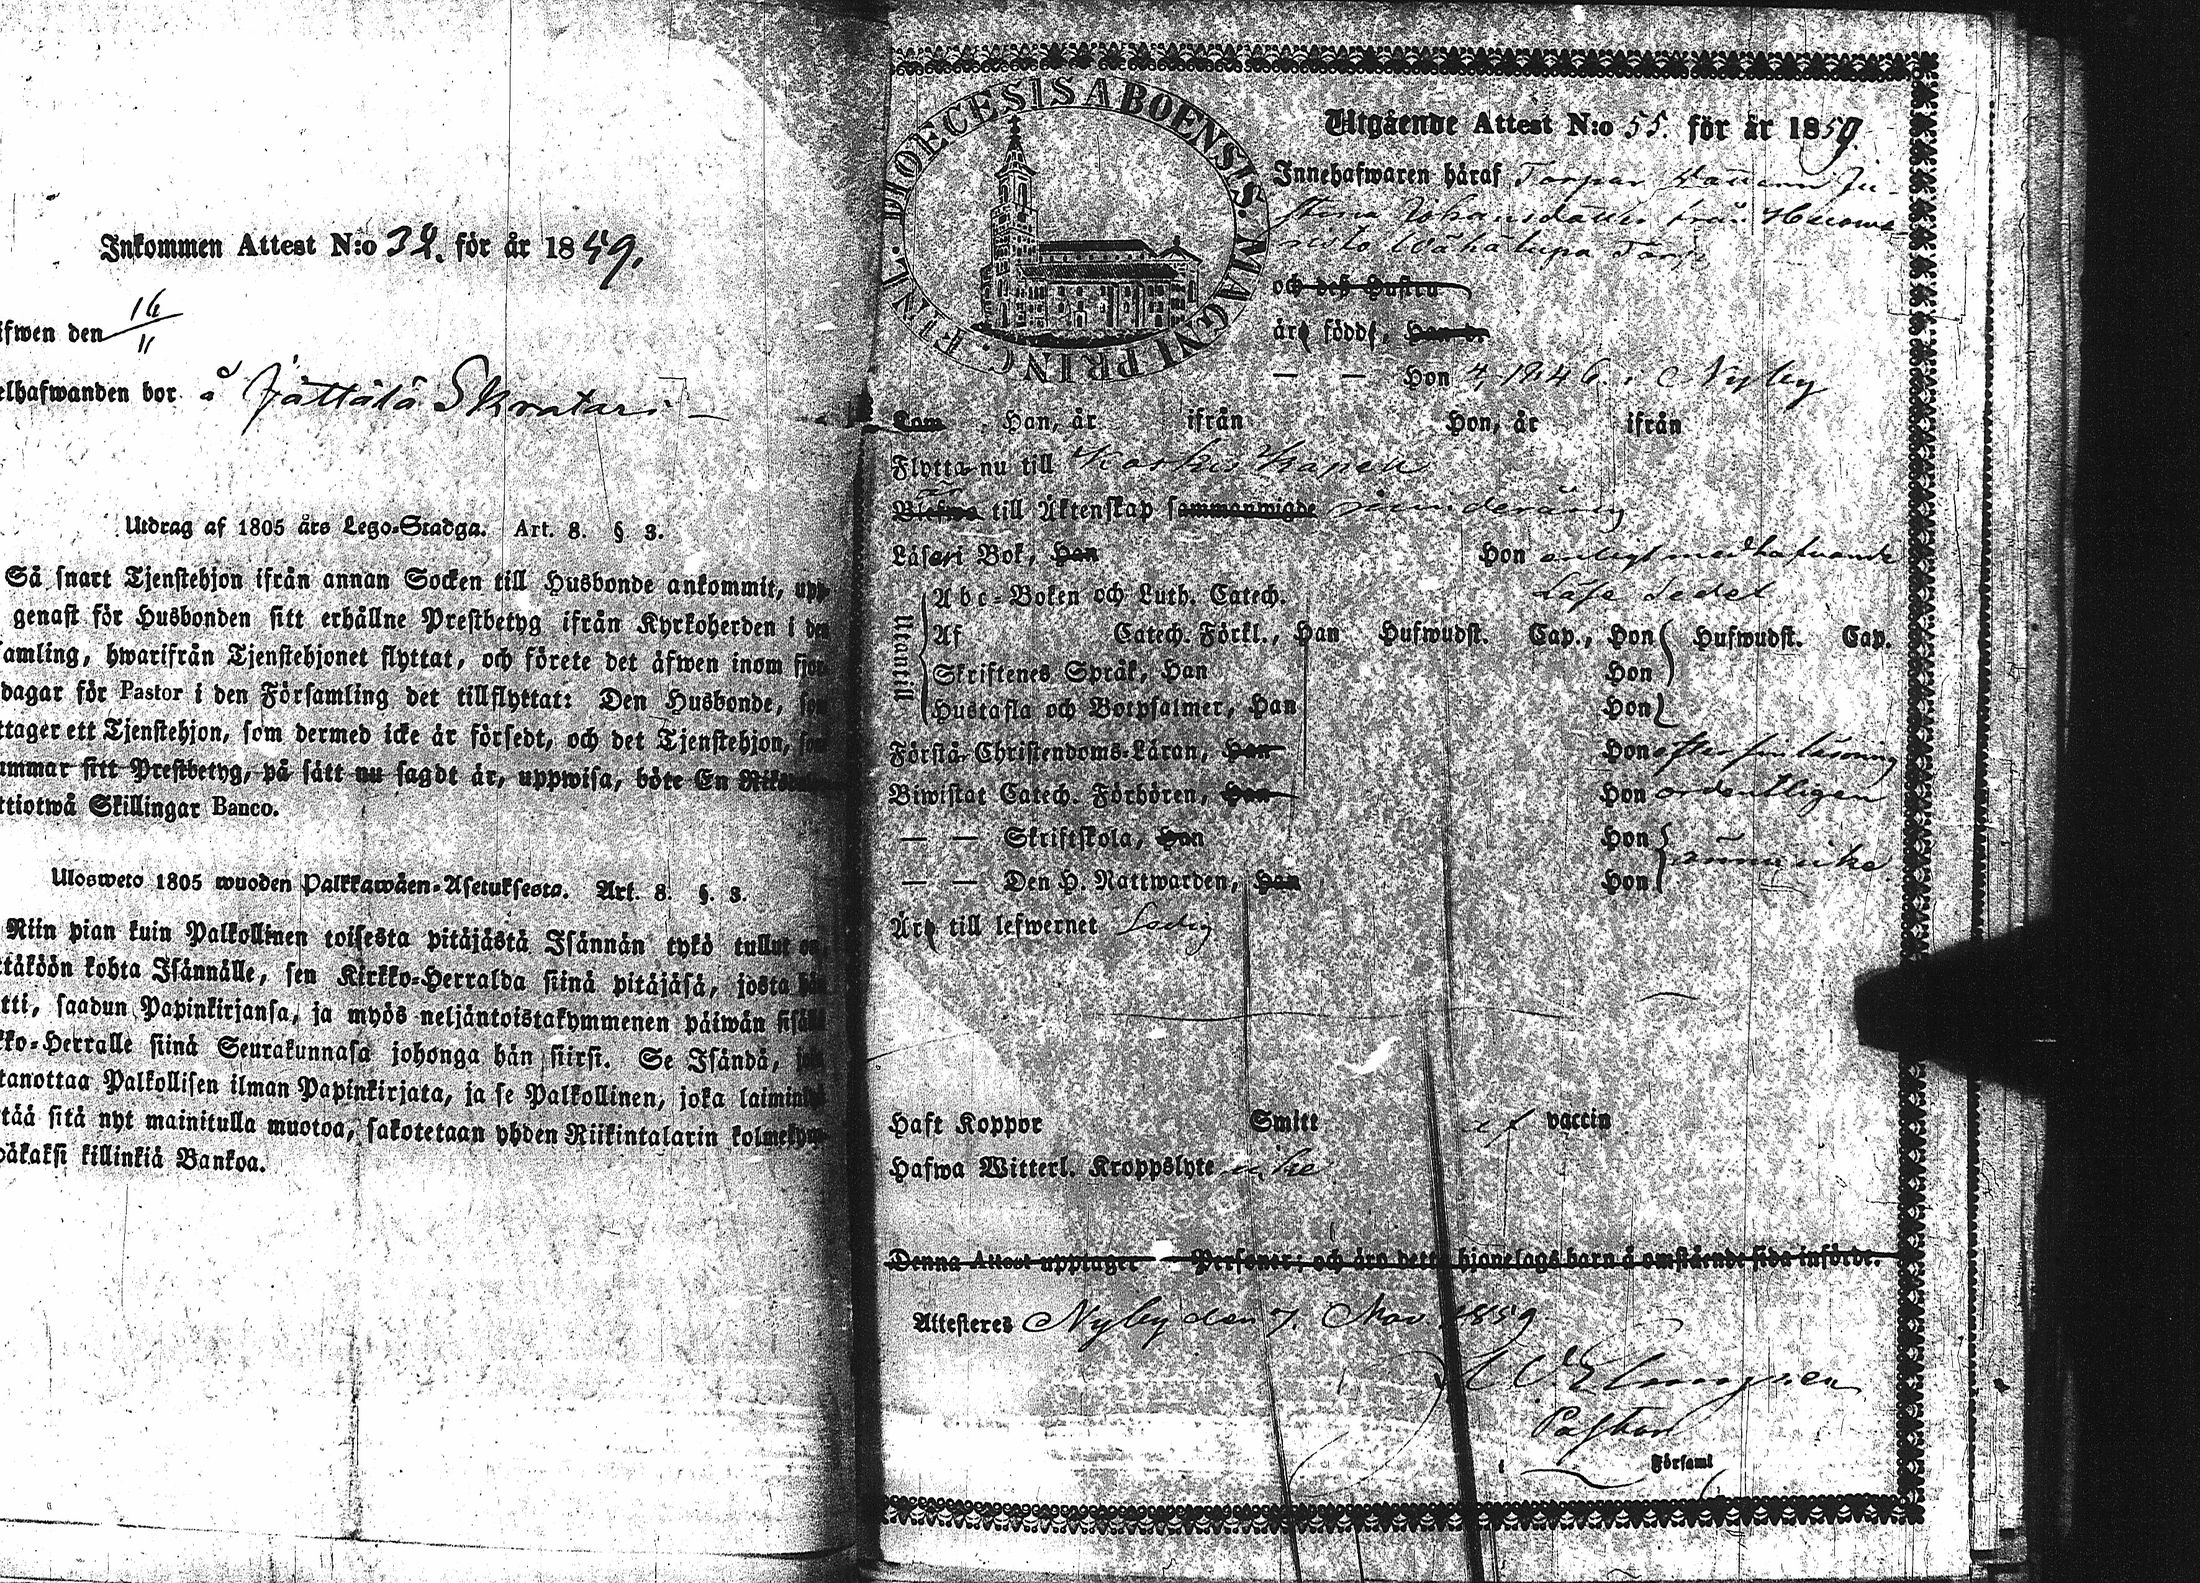 Inkommen Attest N:o 32. för år 1859.
ifwen den 16/11
elhafwanden bor å Jättälä Skratari
Utdrag af 1805 års Lego-Stadga. Art. 8. §. 3.
Så snart Tjenstehjon ifrån annan Socken till Husbonde ankommit, upp
genast för Husbonden sitt erhållne Prestbetyg ifrån Kyrkoherden i den
amling, hwarifrån Tjenstehjonet flyttat, och förete det äfwen inom fjor
dagar för Pastor i den Församling det tillflyttat: Den Husbonde, som
ttager ett Tjenstehjon, som dermed icke är försedt, och det Tjenstehjon, som
ummar sitt Prestbetyg, på sätt nu sagdt är, uppwisa, böte En
ttiotwå Skillingar Banco.
Ulosweto 1805 wuoden Palkkawäen-Asetuksesta. Art. 8. §. 3.
Niin pian kuin Palkollinen toisesta pitäjästä Isännän tykö tullut on,
ttäköön kohta Isännälle, sen Kirkko-Herralda siinä pitäjäsä, josta hän
tti, saadun Papinkirjansa, ja myös neljäntoistakymmenen päiwän sisällä
kko-Herralle siinä Seurakunnasa johonga hän siirsi. Se Isändä, joka
tanottaa Palkollisen ilman Papinkirjata, ja se Palkollinen, joka laiminlyö
ttää sitä nyt mainitulla muotoa, sakotetaan yhden Riikintalarin kolmekym
päkaksi killinkiä Bankoa.
FINL. DIOECESIS ABOENSIS. MAGNI PRINC.
Utgående Attest N:o 55. för år 1859.
Innehafwaren häraf Torpar Ju-
stina Johansdotter från
Torp
och deß Hustru
äro född, Han d.
— — Hon 1846 i Nyby
Kom Han, år ifrån Hon, år ifrån
Flytta nu till Koskis Kapell
är
till Äktenskap sammanwigde minderårig
Läser i Bok, Han Hon enligt medhafwande
Läse Sedel
Utantill
Abc-Boken och Luth. Catech.
Af Catech. Förkl., Han Hufwudst. Cap., Hon Hufwudst. Cap.
Skriftenes Språk, Han Hon
Hustafla och Botpsalmer, Han Hon
Förstår Christendoms-Läran, Han Hon efter sin läsning
Biwistat Catech. Förhören, Han Hon ordentligen
— — Skriftskola, Han Hon
ännu icke
— — Den H. Nattwarden, Han Hon
Är till lefwernet Ledig
Haft Koppor Smitt af vaccin
Hafwa Witterl. Kroppslyte icke
Denna Attest upptager — Personer; och äro dett hjonelags barn å omstående sida införde.
Attesteres Nyby den 7. Nov. 1859
Elmgren
Pastor
i Församl